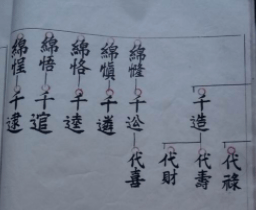 綿惺 綿愼 綿恪 綿悟 綿惺
千造 千訟 千遴 千逵 千逭 千逮
代祿 代壽 代財 代喜